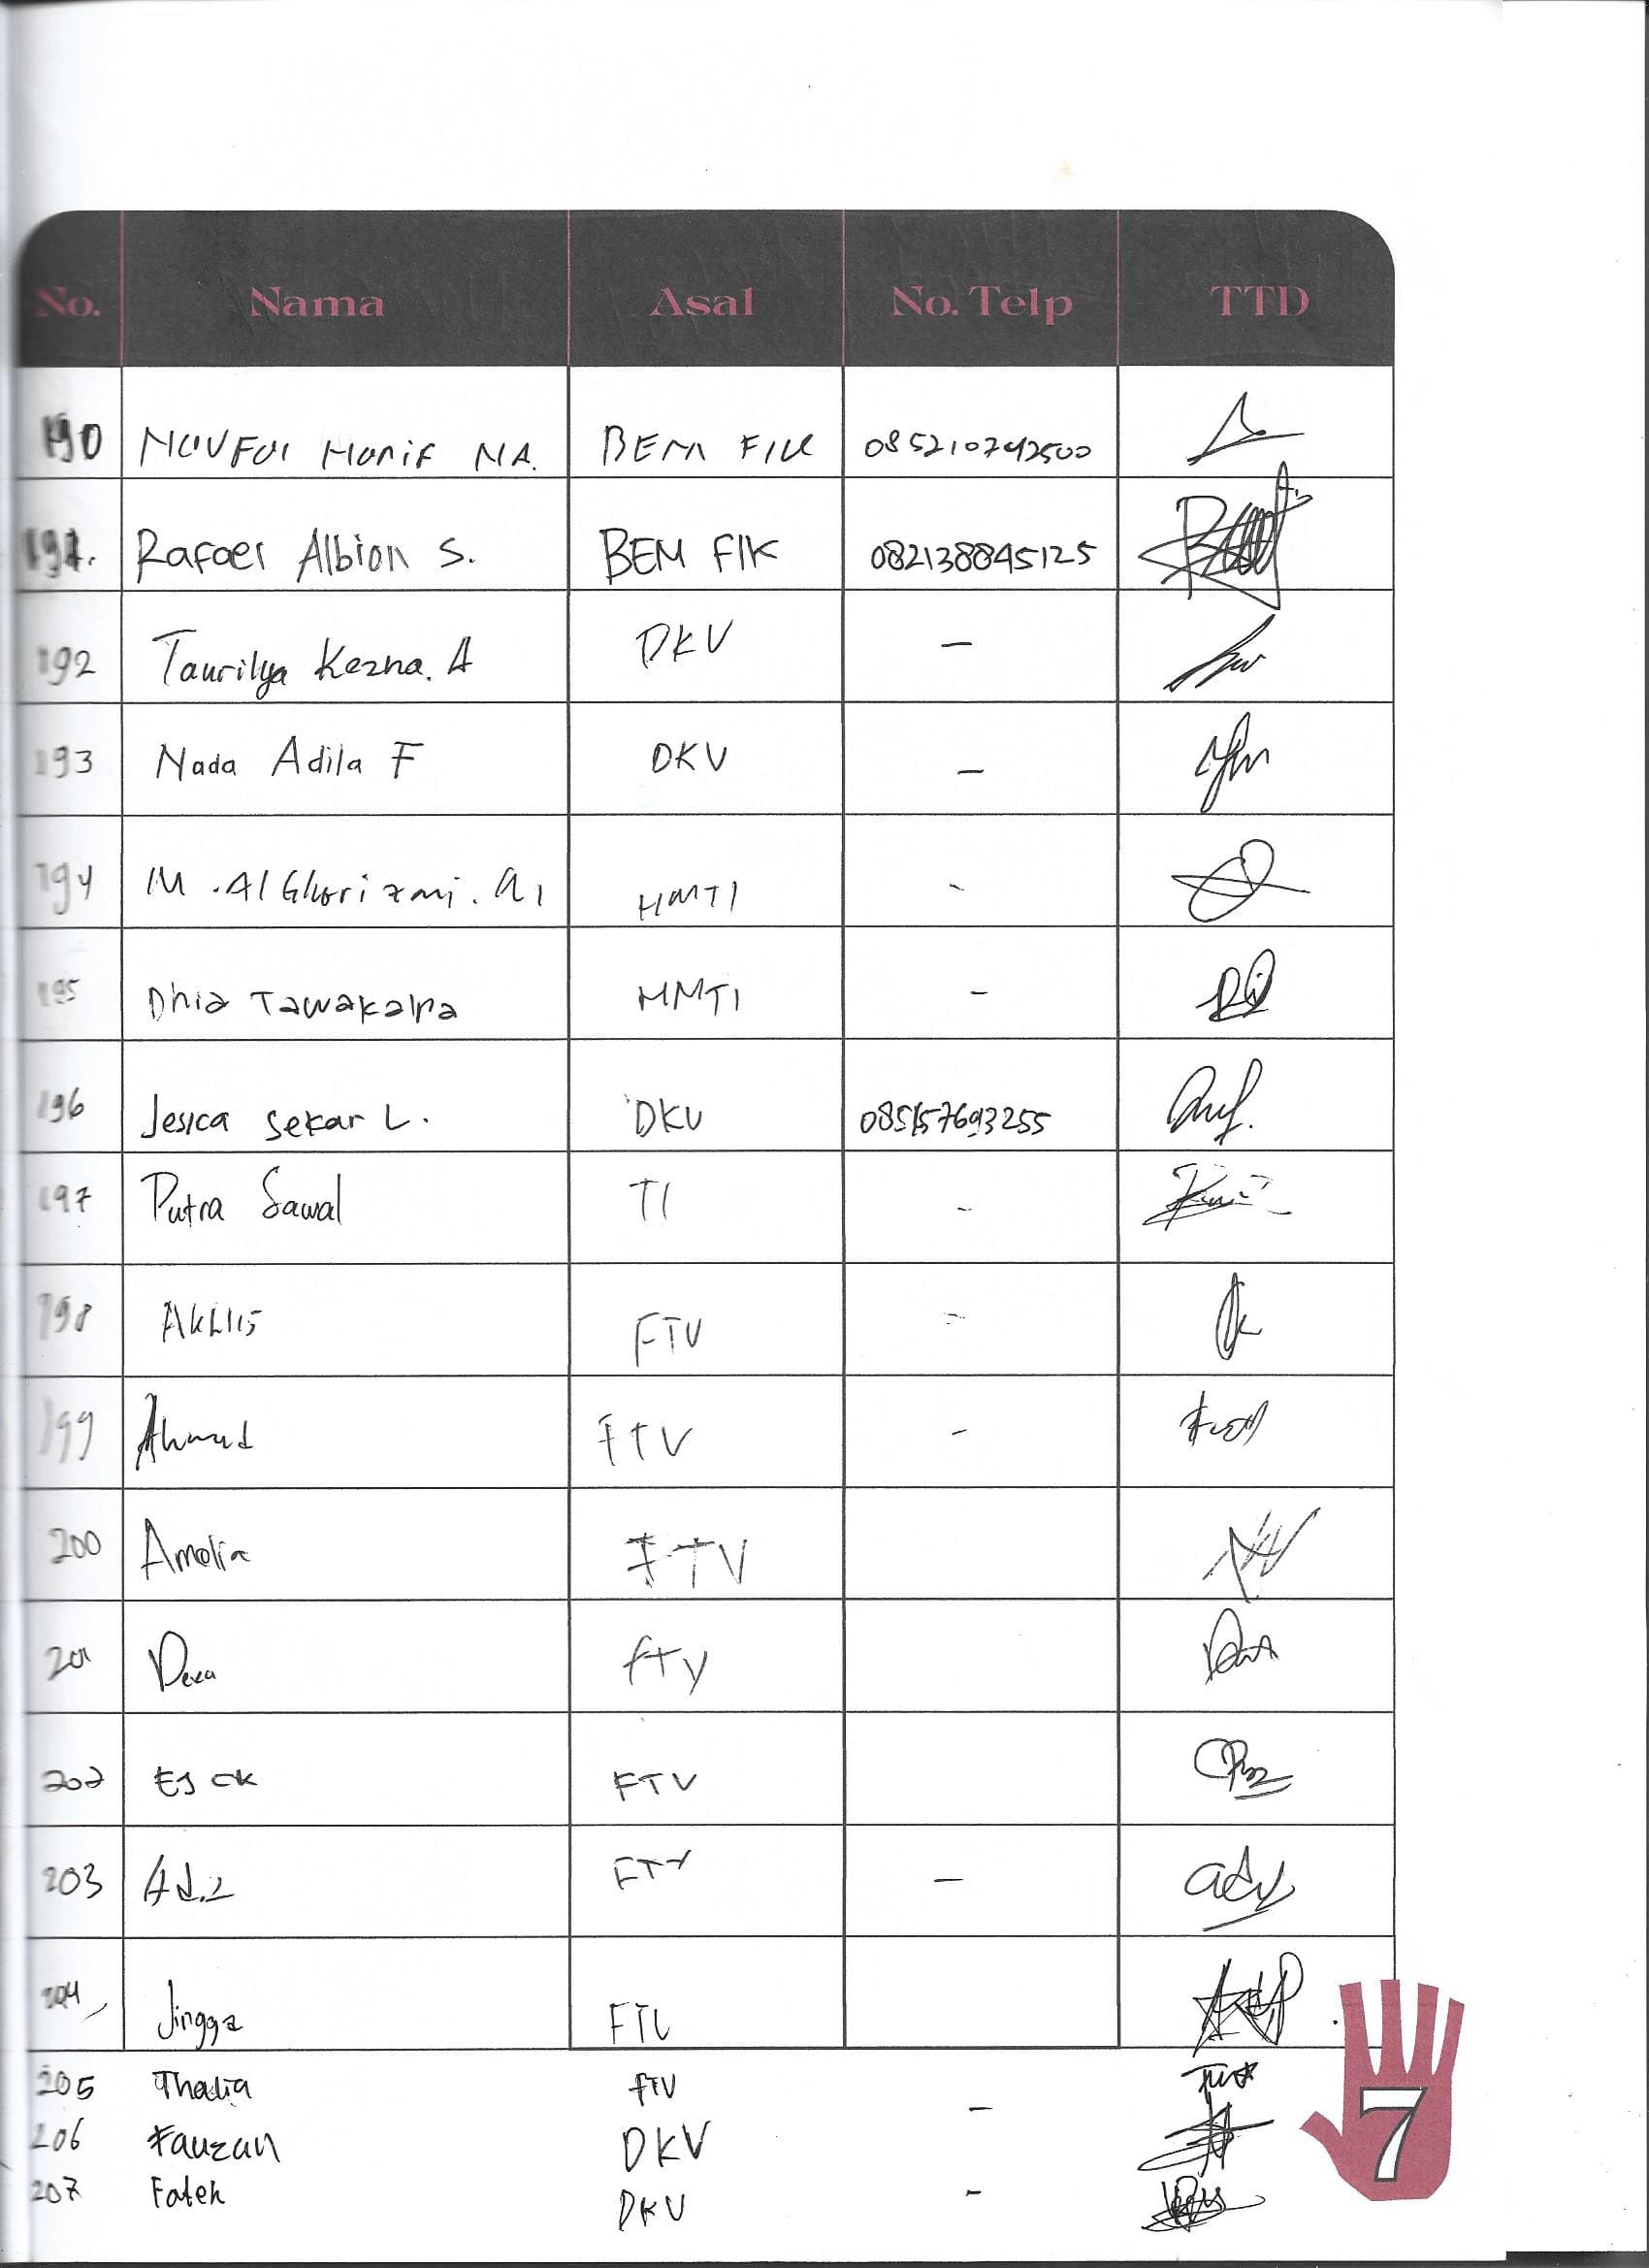 No. Nama Asal No. Telp TTD
190 Naufal Hanif NA. BEM FIK 085210742500
191. Rafael Albion S. BEM FIK 082138845125
192 Taurilya Kezna. A DKV -
193 Nada Adila F DKV -
194 M. Al Ghorizmi. A1 HMTI -
195 Dhia Tawakalna HMTI -
196 Jesica Sekar L. DKV 085157693255
197 Putra Sawal TI -
198 AKhlis FTV -
199 Ahmad FTV -
200 Amelia FTV
201 FTV
202 FTV
203 FTV -
204 Jingga FTV
205 Thalia FTV -
206 Fauzan DKV
207 Fateh DKV -
7